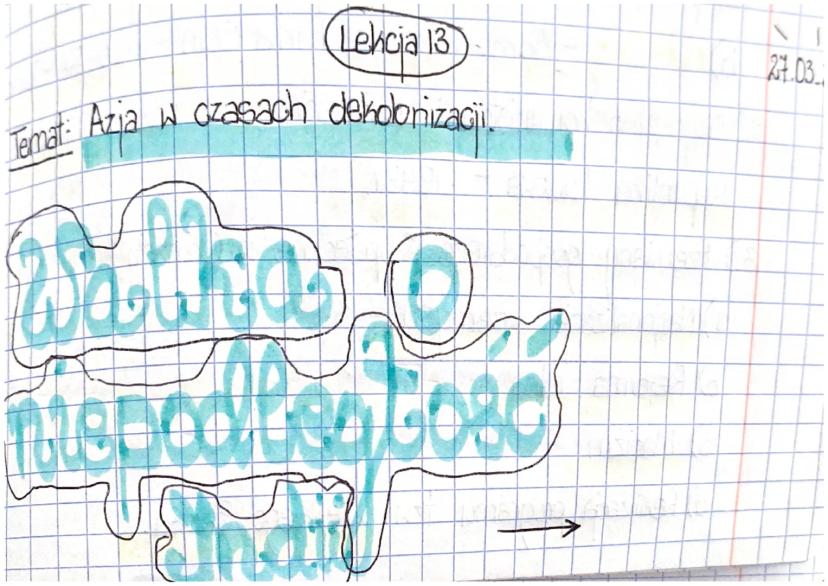 Lekcja 13
27.03.
Temat: Azja w czasach dekolonizacji.
Walka o
niepodległość
Indii